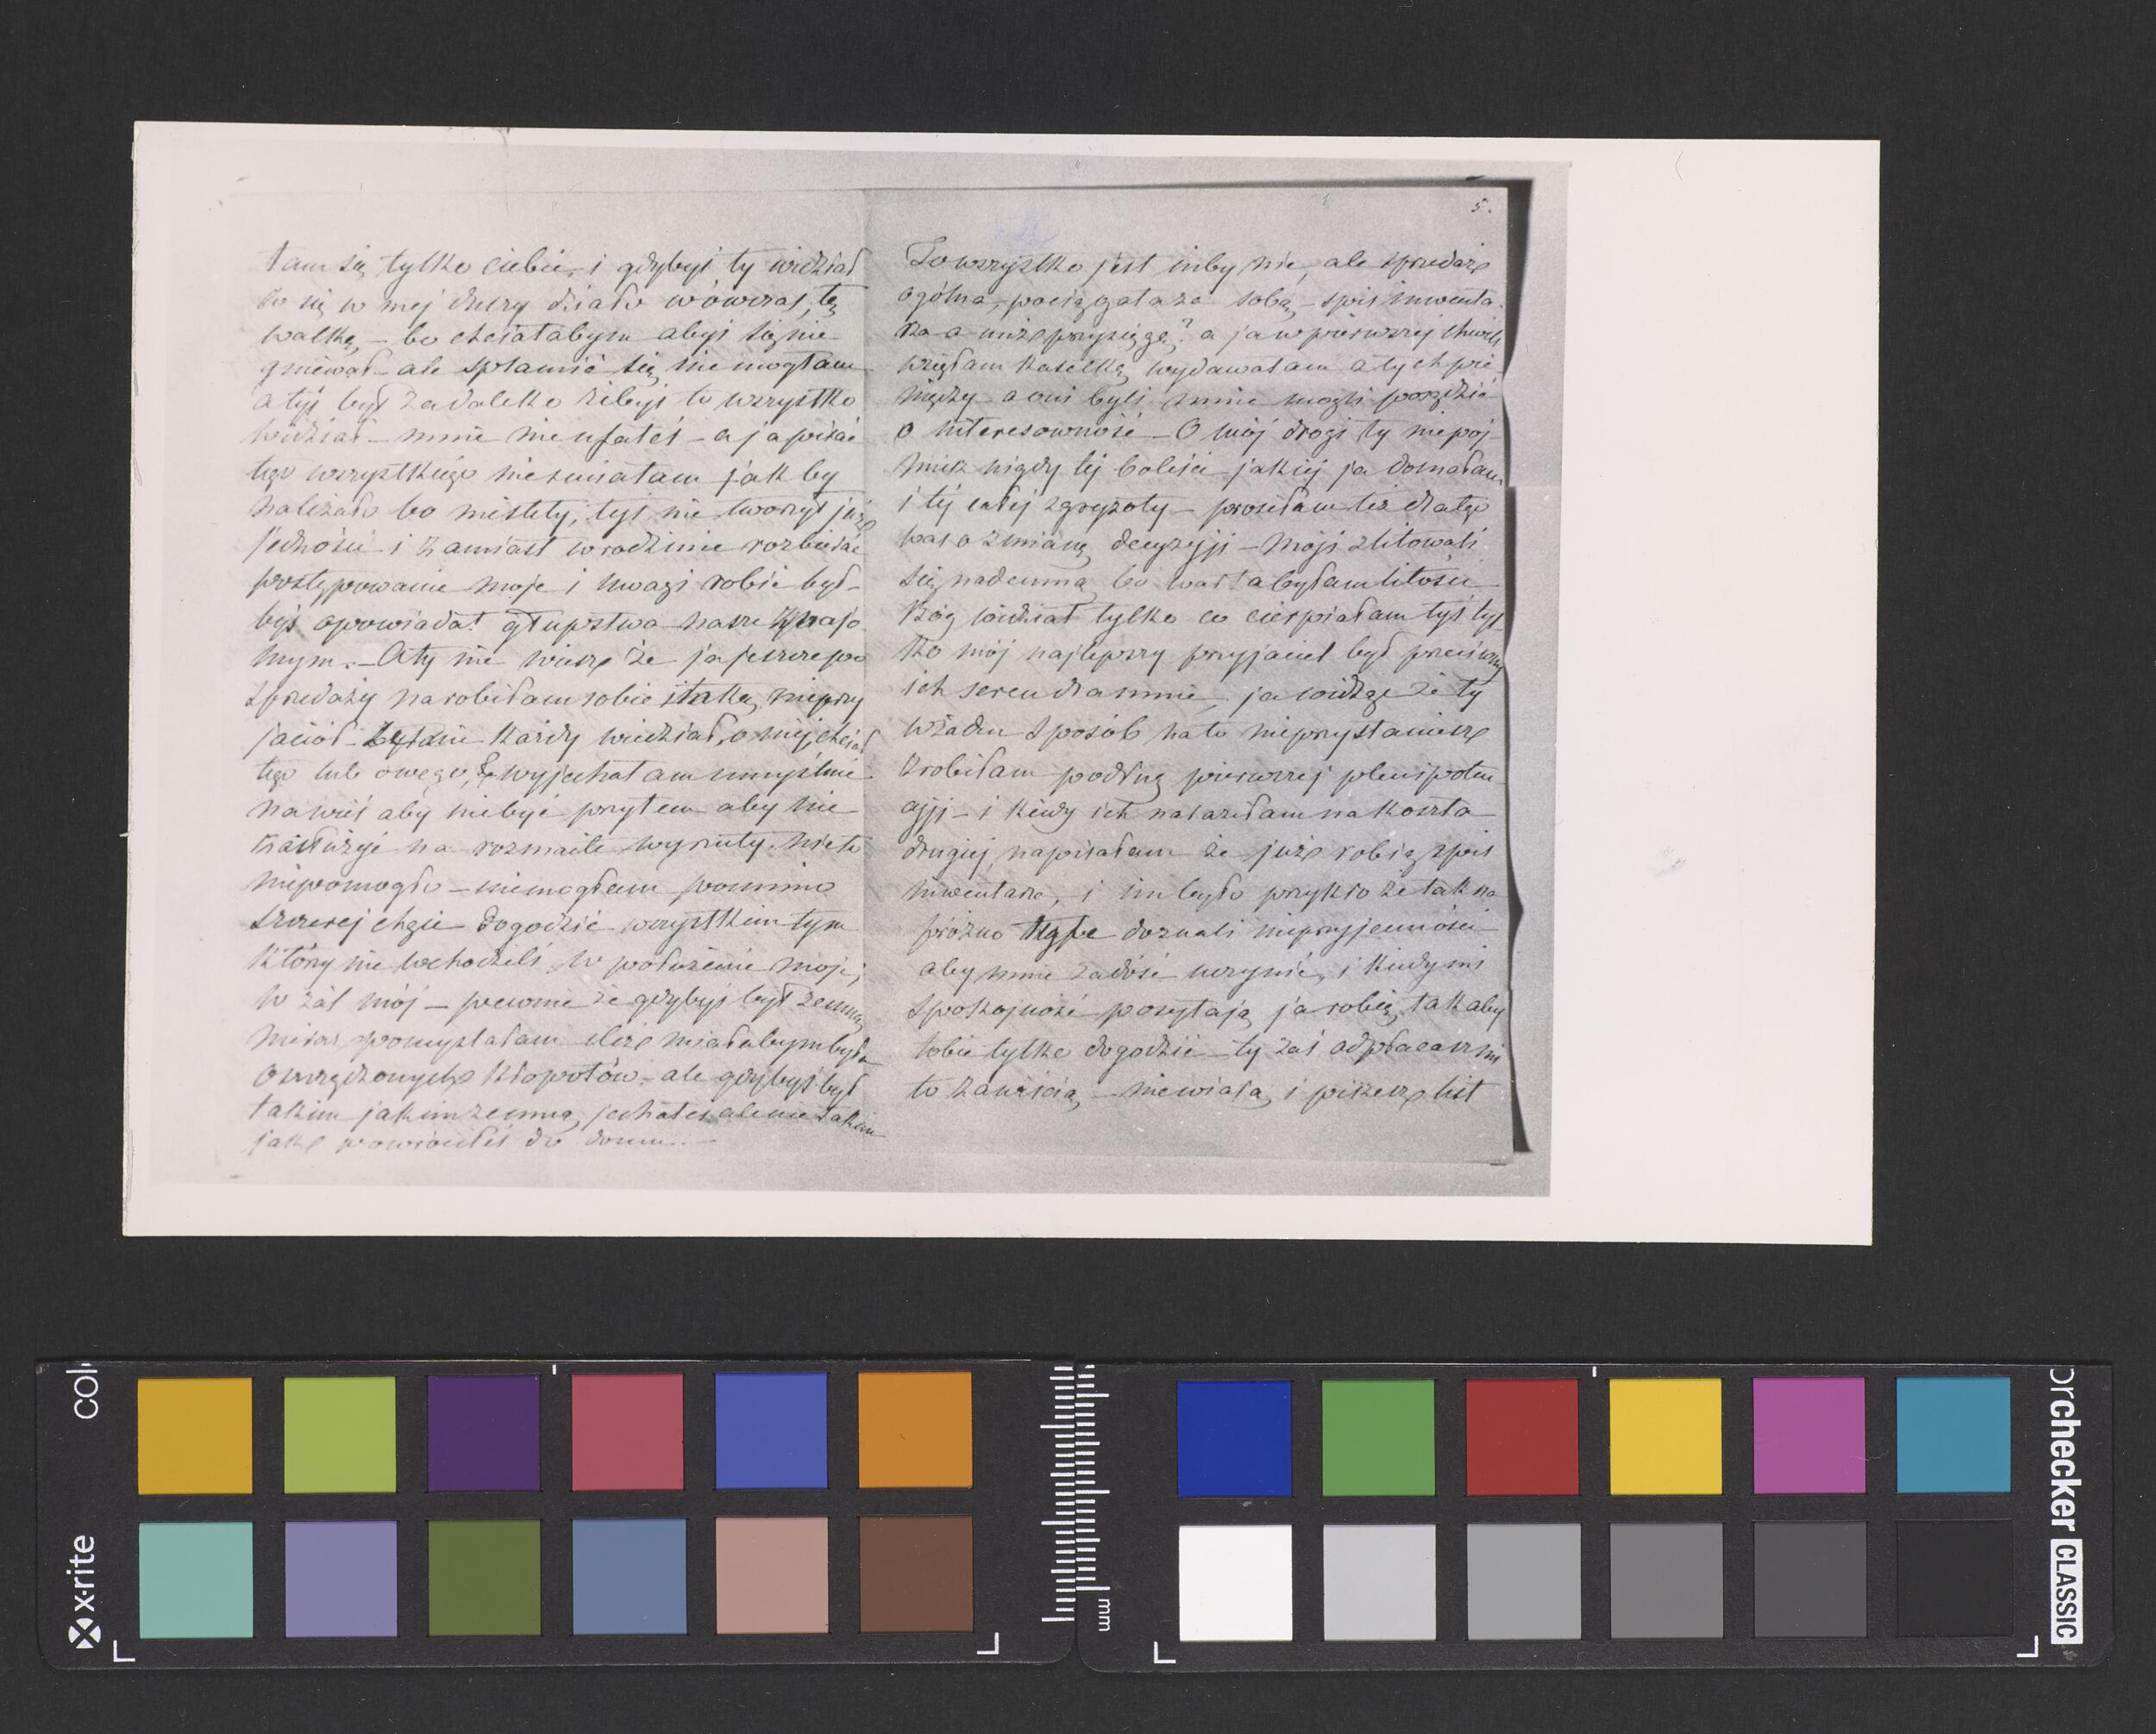 tam się tylko ciebie, i gdybyś ty widział
co się w mej duszy działo wówczas, tę
walkę, – bo chciałabym abyś się nie
gniewał – ale splamić się nie mogłam
a tyś był za daleko żebyś to wszystko
widział – mnie nie ufałeś – a ja pisać
tego wszystkiego nie śmiałam jak by
należało bo niestety, tyś nie tworzył już
jedności i zamiast w rodzinie rozbierać
postępowanie moje i uwagi robić był-
byś opowiadał głupstwa nasze
mym. – A ty nie wiesz że ja jeszcze po
sprzedaży narobiłam sobie nieprzy
jaciół – każdy wiedział, o niej chciał
tego lub owego, wyjechałam umyślnie
na wieś aby nie być przytem aby nie
zasłużyć na rozmaite wyrzuty. nic to
niepomogło – niemogłam pomimo
szczerej chęci dogodzić wszystkim tym
który nie wchodzili w położenie moje,
w żal mój – pewnie że gdybyś był zemną
nieraz pomyślałam ileż miałabym była
oszczędzonych kłopotów – ale gdybyś był
takim jakim zemną jechałeś ale nie takim
jak powróciłeś do domu. –
5.
To wszystko jest niby nic, ale sprzedaż
ogólna, pociągała za sobą – spis inwenta-
rza a nuż przysięgę? a ja w pierwszej chwili
wzięłam kasetkę, wydawałam z tych pie-
niędzy – a oni byli mnie mogli posądzić
o interesowność – O mój drogi ty niepoj-
miesz nigdy tej boleści jakiej ja doznałam
i tej całej zgryzoty – prosiłam też dlatego
was o zmianę decyzyji – moji zlitowali
się nademną bo warta byłam litości
Bóg widział tylko co cierpiałam tyś tyl-
ko mój najlepszy przyjaciel był przeciwny
ich sercu dla mnie, ja widząc że ty
w żaden sposób na to nieprzystaniesz
zrobiłam podług pierwszej plenipoten
cyji – i kiedy ich naraziłam na koszta
drugiej napisałam że już robią spis
inwentarza, i im było przykro że tak na
próżno doznali nieprzyjemności
aby mnie zadość uczynić, i kiedy mi
spokojność posyłają ja robię, tak aby
tobie tylko dogodzić – ty zaś odpłacasz mi
to zawiścią – niewiarą, i piszesz list